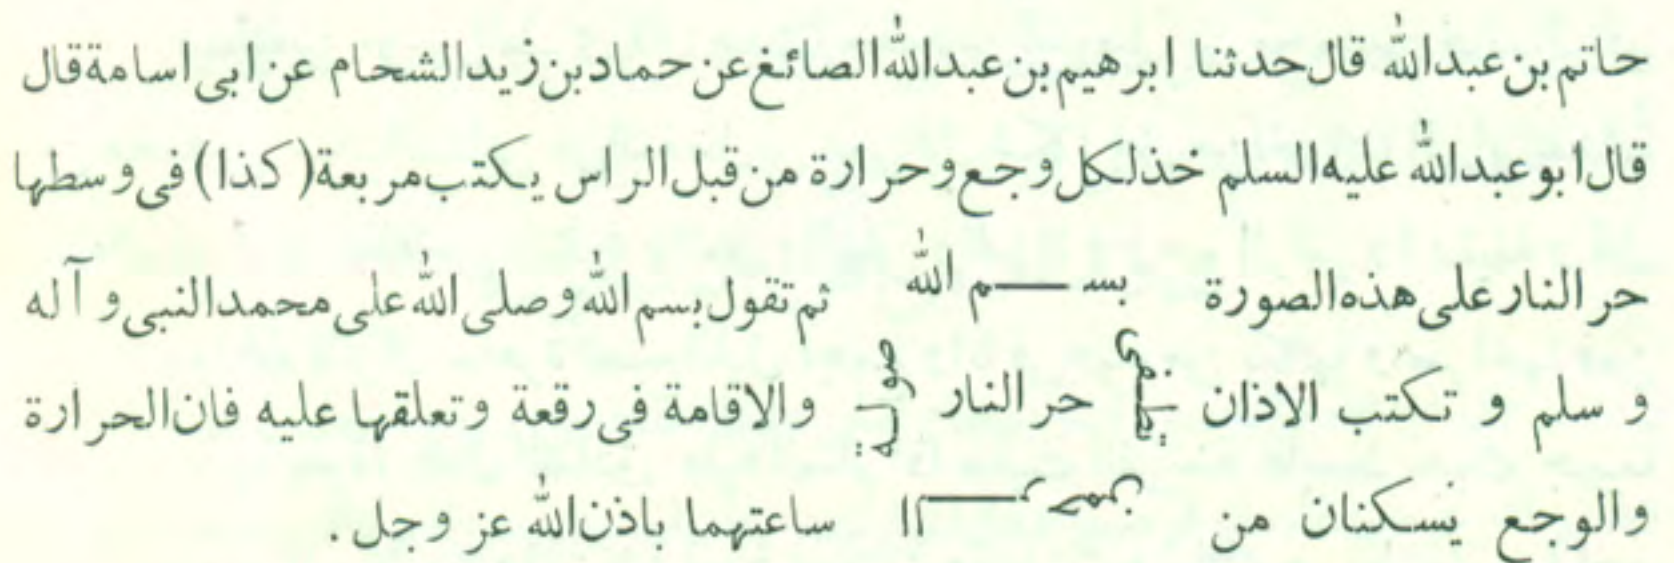 حاتم بن عبدالله قال حدثنا ابرهيم بن عبدالله الصائغ عن حماد بن زيد الشحام عن ابى اسامة قال
قال ابو عبدالله عليه السلم خذ لكل وجع وحرارة من قبل الراس يكتب مربعة (كذا) فى وسطها
حر النار على هذه الصورة بسم الله ثم تقول بسم الله وصلى الله على محمد النبى و آله
و سلم و تكتب الاذان تطفى حر النار والاقامة فى رقعة وتعلقها عليه فان الحرارة
والوجع يسكنان من الرحمن ساعتهما باذن الله عز وجل .